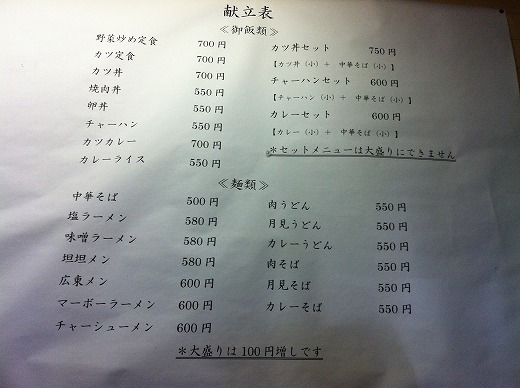 献立表
≪御飯類≫
野菜炒め定食 700円
カツ定食 700円
カツ丼 700円
焼肉丼 550円
卵丼 550円
チャーハン 550円
カツカレー 700円
カレーライス 550円
カツ丼セット 750円
【カツ丼（小）＋ 中華そば（小）】
チャーハンセット 600円
【チャーハン（小）＋ 中華そば（小）】
カレーセット 600円
【カレー（小）＋ 中華そば（小）】
＊セットメニューは大盛りにできません
≪麺類≫
中華そば 500円
塩ラーメン 580円
味噌ラーメン 580円
坦坦メン 580円
広東メン 600円
マーボーラーメン 600円
チャーシューメン 600円
肉うどん 550円
月見うどん 550円
カレーうどん 550円
肉そば 550円
月見そば 550円
カレーそば 550円
＊大盛りは100円増しです